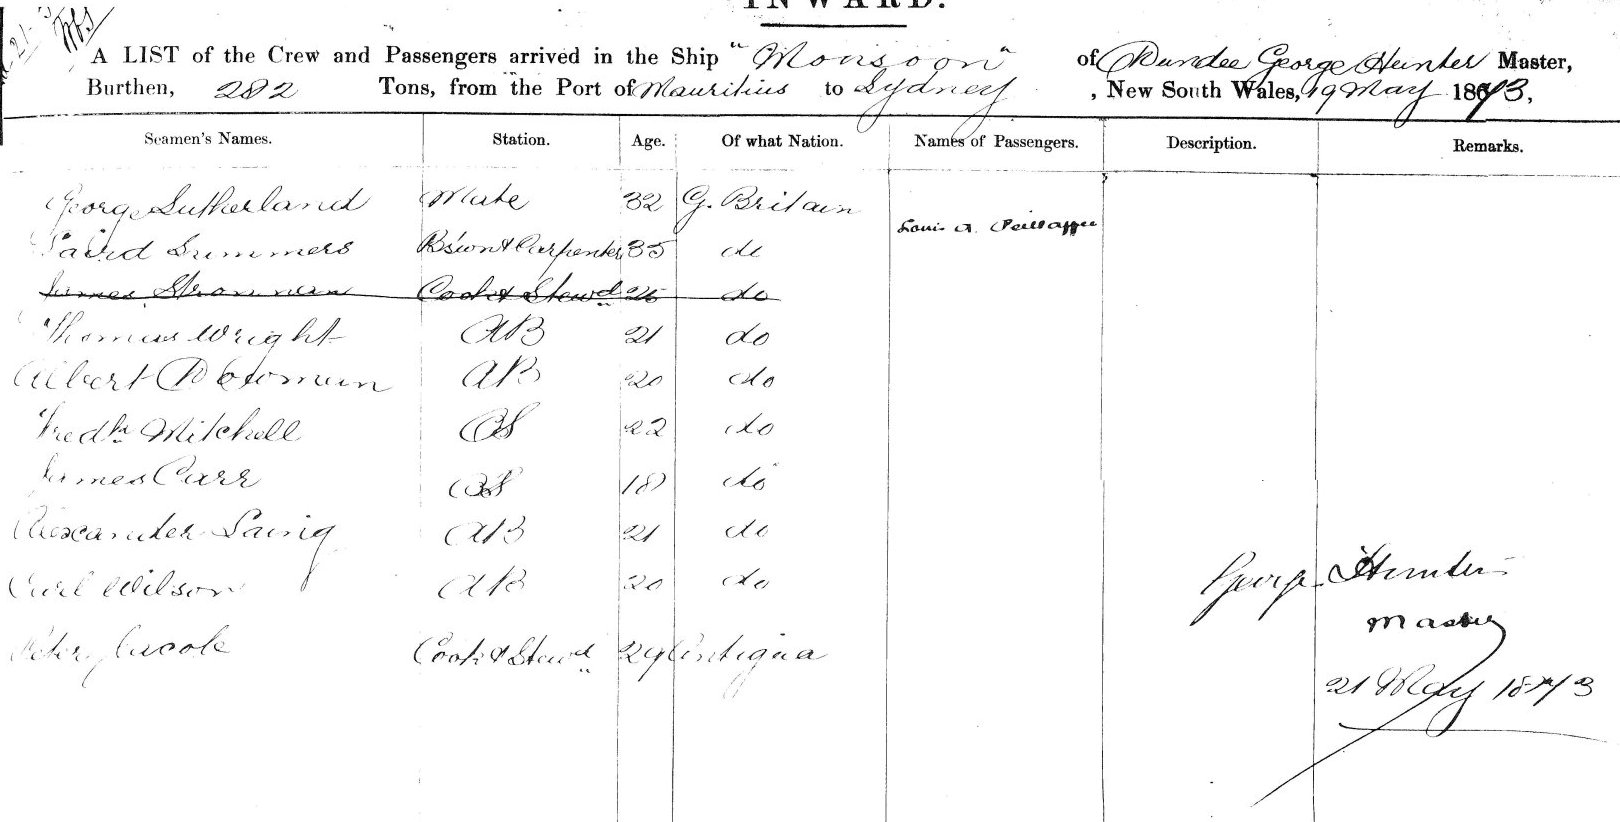 INWARD.
21
A LIST of the Crew and Passengers arrived in the Ship "Monsoon" of Dundee George Hunter Master,
Burthen, 282 Tons, from the Port of Mauritius to Sydney, New South Wales, 19 May 1873,
Seamen's Names. Station. Age. Of what Nation. Names of Passengers. Description. Remarks.
George Sutherland Mate 32 G. Britain
Louis A.
David Summers Bs'wn & Carpenter 35 do
James Cook & Stewd 25 do
Thomas Wright AB 21 do
Albert AB 20 do
Fredk Mitchell OS 22 do
James Carr OS 18 do
Alexander Laing AB 21 do
Carl Wilson AB 20 do
Peter Jacobs Cook & Stewd 29 Antigua
George Hunter
Master
21 May 1873